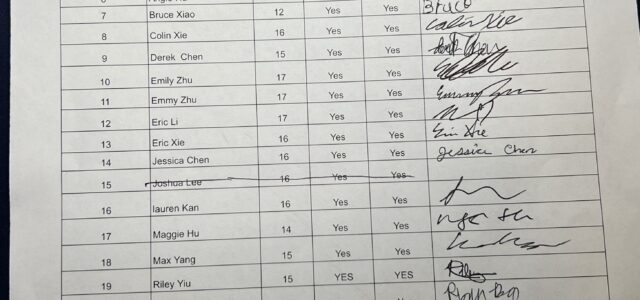 7 Bruce Xiao 12 Yes Yes Bruce
8 Colin Xie 16 Yes Yes Colin Xie
9 Derek Chen 15 Yes Yes
10 Emily Zhu 17 Yes Yes
11 Emmy Zhu 17 Yes Yes
12 Eric Li 17 Yes Yes
13 Eric Xie 16 Yes Yes Eric Xie
14 Jessica Chen 16 Yes Yes Jessica Chen
15 Joshua Lee 16 Yes Yes
16 lauren Kan 16 Yes Yes
17 Maggie Hu 14 Yes Yes
18 Max Yang 15 Yes Yes
19 Riley Yiu 15 YES YES Riley